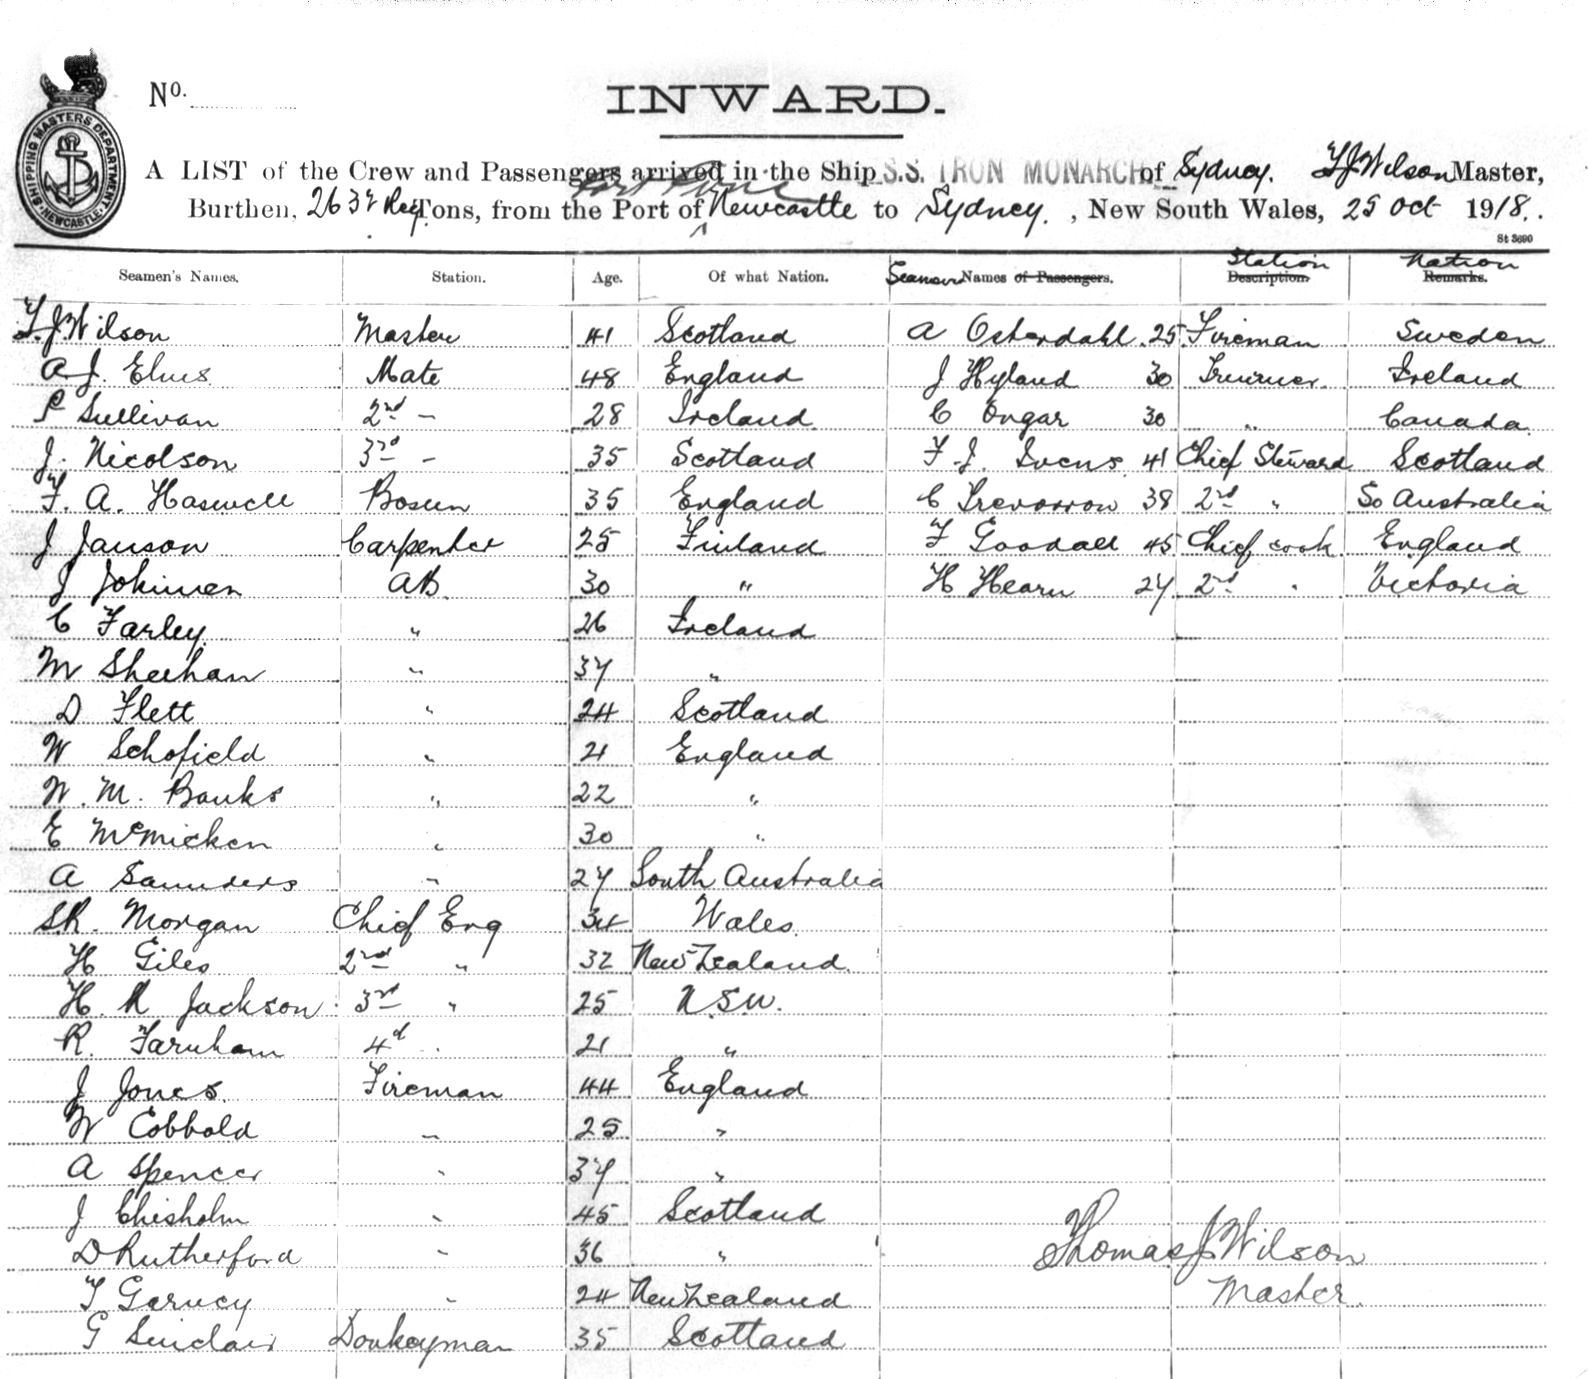 SHIPPING MASTERS DEPARTMENT
NEWCASTLE
No.
INWARD.
A LIST of the Crew and Passengers arrived in the Ship S.S. IRON MONARCH of Sydney. T.J Wilson Master,
Port Pirie
Burthen, 2632 Reg Tons, from the Port of Newcastle to Sydney., New South Wales, 25 Oct 1918.
St 3690
Seamen's Names. Station. Age. Of what Nation. Seamens Names of Passengers. Station Description. Nation Remarks.
T.J. Wilson Master 41 Scotland A Osterdahl 25 Fireman Sweden
A J. Mate 48 England J Hyland 30 Trimmer Ireland
P Sullivan 2nd - 28 Ireland C Ongar 30 " Canada
J. Nicolson 3rd - 35 Scotland F. J. Ivens 41 Chief Steward Scotland
F. A. Haswell Bosun 35 England C Trevorrow 38 2nd " So Australia
J Janson Carpenter 25 Finland F Goodall 45 Chief cook England
J Jokinen AB 30 " H Hearn 27 2nd " Victoria
C Farley " 26 Ireland
M Sheehan " 37 "
D Flett " 24 Scotland
W Schofield " 21 England
W. M. Banks " 22 "
E McMicken " 30 "
A Saunders " 27 South Australia
S.R. Morgan Chief Eng 34 Wales
H Giles 2nd " 32 New Zealand
H. R Jackson 3rd " 25 N.S.W.
R. Farnham 4d " 21 "
J Jones Fireman 44 England
W Cobbold " 25 "
A Spencer " 37 "
J Chisholm " 45 Scotland
D Rutherford " 36 "
T Garvey " 24 New Zealand
G Sinclair Donkeyman 35 Scotland
Thomas J Wilson
Master